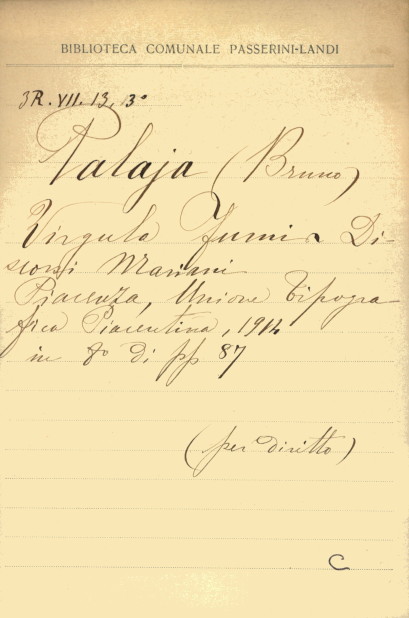 BIBLIOTECA COMUNALE PASSERINI-LANDI
3R. VII. 13, 3º
Palaja (Bruno)
Virgula Fumi Di-
scorsi
Piacenza, Unione Tipogra-
fica Piacentina, 1914
in 8º di pp 87
(per diritto)
C